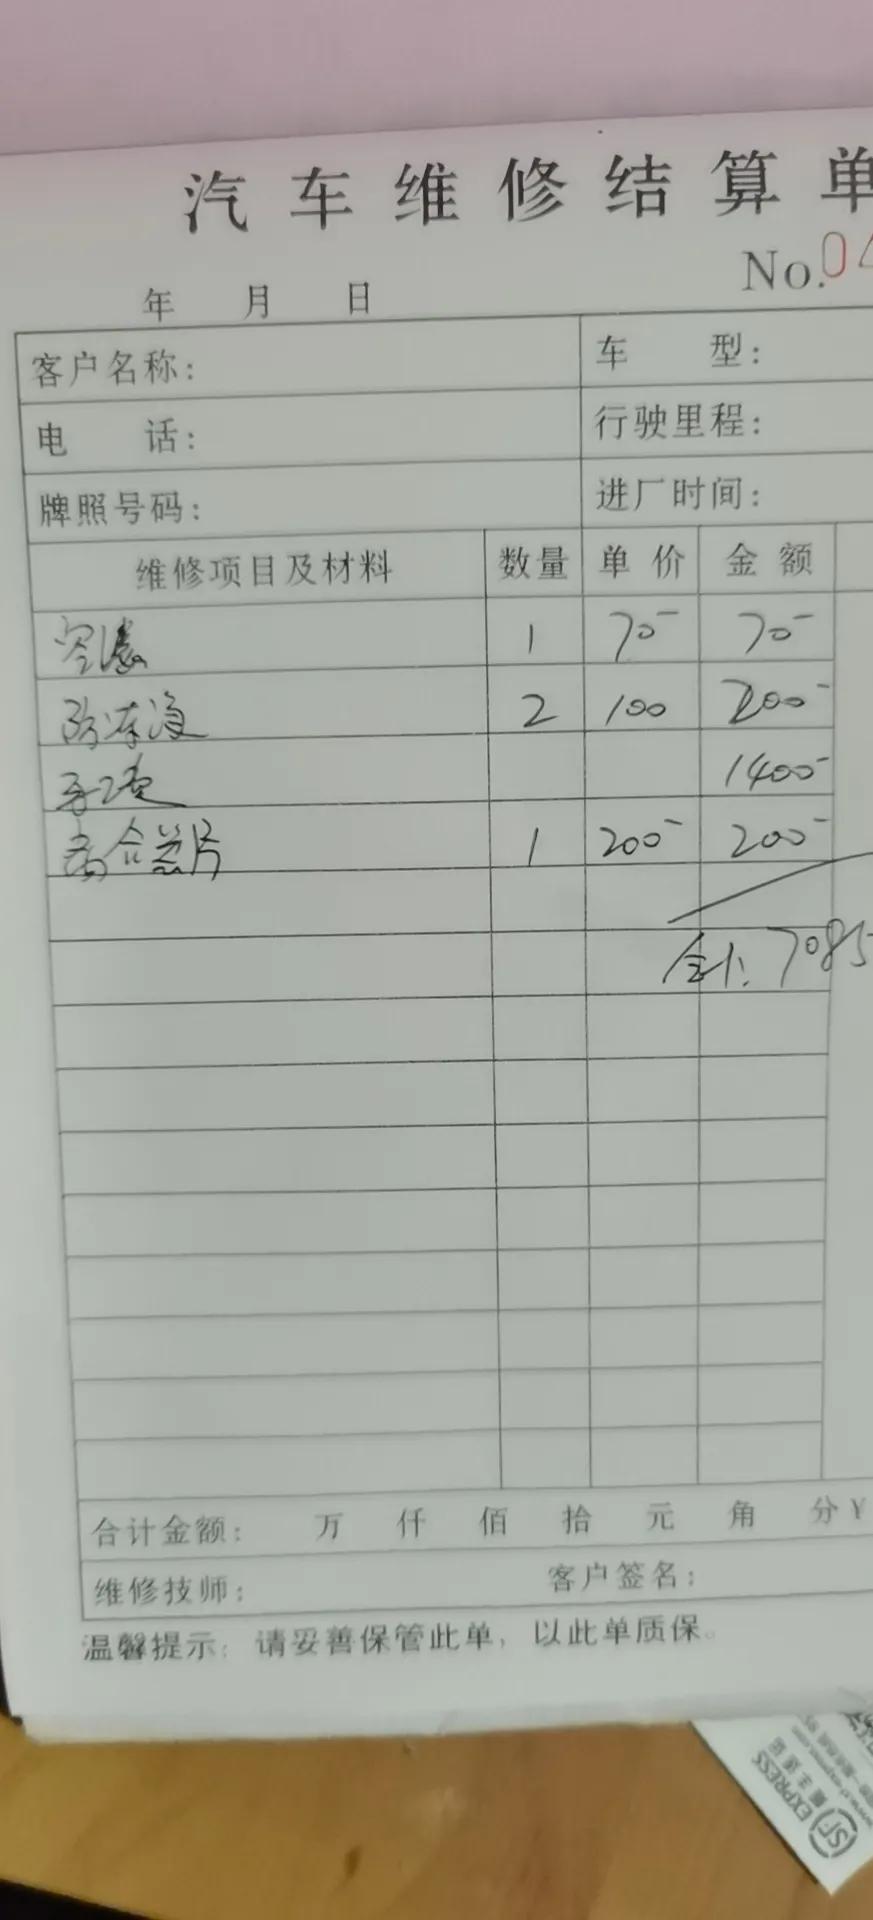 汽车维修结算单
No.04
年 月 日
客户名称： 车 型：
电 话： 行驶里程：
牌照号码： 进厂时间：
维修项目及材料 数量 单价 金额
空滤 1 70- 70-
防冻液 2 100 200-
手工费 1400-
离合器片 1 200- 200-
合计：7085
合计金额： 万 仟 佰 拾 元 角 分￥
维修技师： 客户签名：
温馨提示：请妥善保管此单，以此单质保。
SF EXPRESS